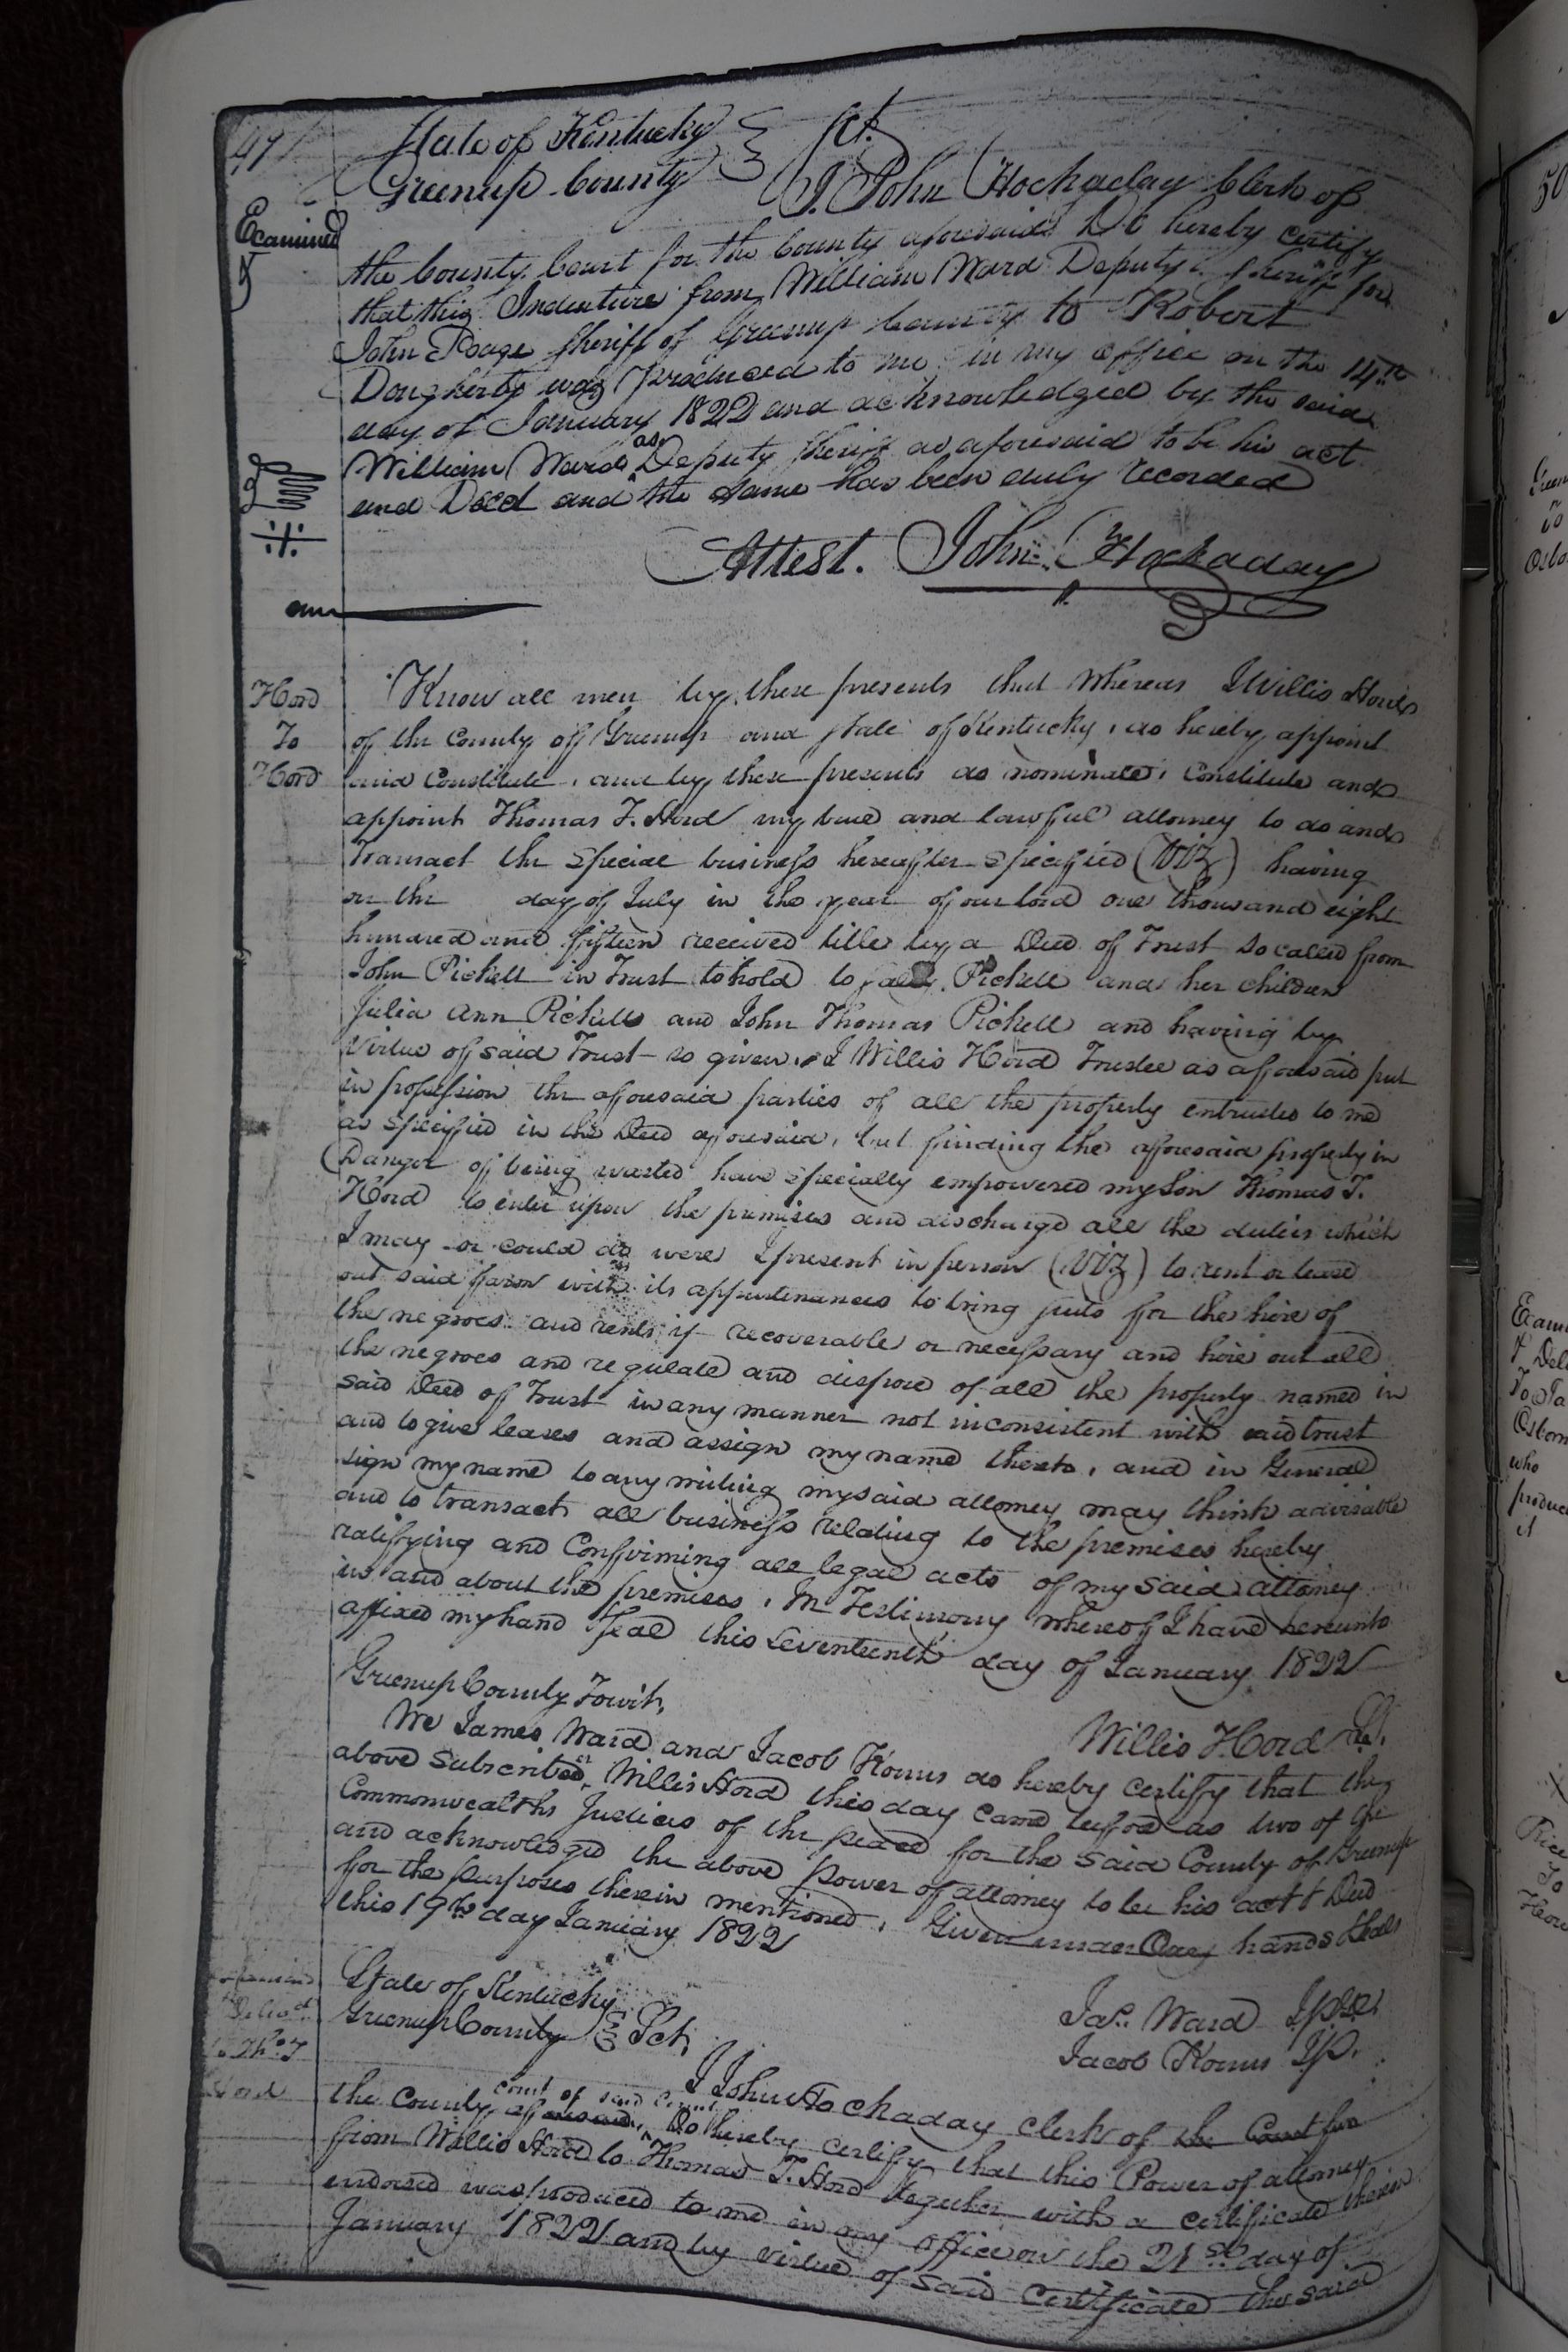 47
State of Kentucky
Greenup County } Sct.
I. John Hockaday Clerk of
Examined
the County Court for the County aforesaid Do hereby certify
that this Indenture from William Ward Deputy Sheriff for
John Poage Sheriff of Greenup County to Robert
Dougherty was produced to me in my office on the 14th
day of January 1822 and acknowledged by the said
William Ward as Deputy Sheriff as aforesaid to be his act
and Deed and the same has been duly recorded
Attest. John Hockaday
Hord
To
Hord
Know all men by these presents that Whereas I Willis Hord
of the County of Greenup and state of Kentucky, do hereby appoint
and Constitute, and by these presents do nominate, Constitute and
appoint Thomas T. Hord my true and lawful attorney to do and
Transact the special business hereafter specified (VIZ) having
on the day of July in the year of our lord one thousand eight
hundred and fifteen received title by a Deed of Trust so called from
John Pickett in Trust to hold to Pickett and her children
Julia Ann Pickett and John Thomas Pickett and having by
Virtue of said Trust so given, I Willis Hord Trustee as aforesaid put
in possession the aforesaid parties of all the property entrusted to me
as specified in the Deed aforesaid, but finding the aforesaid property in
Danger of being wasted have specially empowered my Son Thomas T.
Hord to enter upon the premises and discharge all the duties which
I may or could do were I present in person (VIZ) to rent or lease
out said farm with its appurtenances to bring suits for the hire of
the negroes and rents if recoverable or necessary and hire out all
the negroes and regulate and dispose of all the property named in
said Deed of Trust in any manner not inconsistent with said trust
and to give leases and assign my name thereto, and in General
sign my name to any writing my said attorney may think advisable
and to transact all business relating to the premises hereby
ratifying and Confirming all legal acts of my said attorney
in and about the premises, In Testimony whereof I have hereunto
affixed my hand & Seal this Seventeenth day of January 1822
Willis Hord
Greenup County Towit,
We James Ward and Jacob Kouns do hereby certify that the
above subscribed Willis Hord this day came before as two of the
Commonwealths Justices of the peace for the said County of Greenup
and acknowledged the above power of attorney to be his act & Deed
for the purposes therein mentioned, Given under Our hands & Seals
this 19th day January 1822
Jas. Ward
Jacob Kouns JP.
Delivd
to Thos T
Hord
State of Kentucky
Greenup County } Sct,
I John Hockaday clerk of the Court for
the County aforesaid court of said County Do hereby certify that this Power of attorney
from Willis Hord to Thomas T. Hord together with a certificate thereon
endorsed was produced to me in my office on the 21st day of
January 1822 and by virtue of said certificate the said